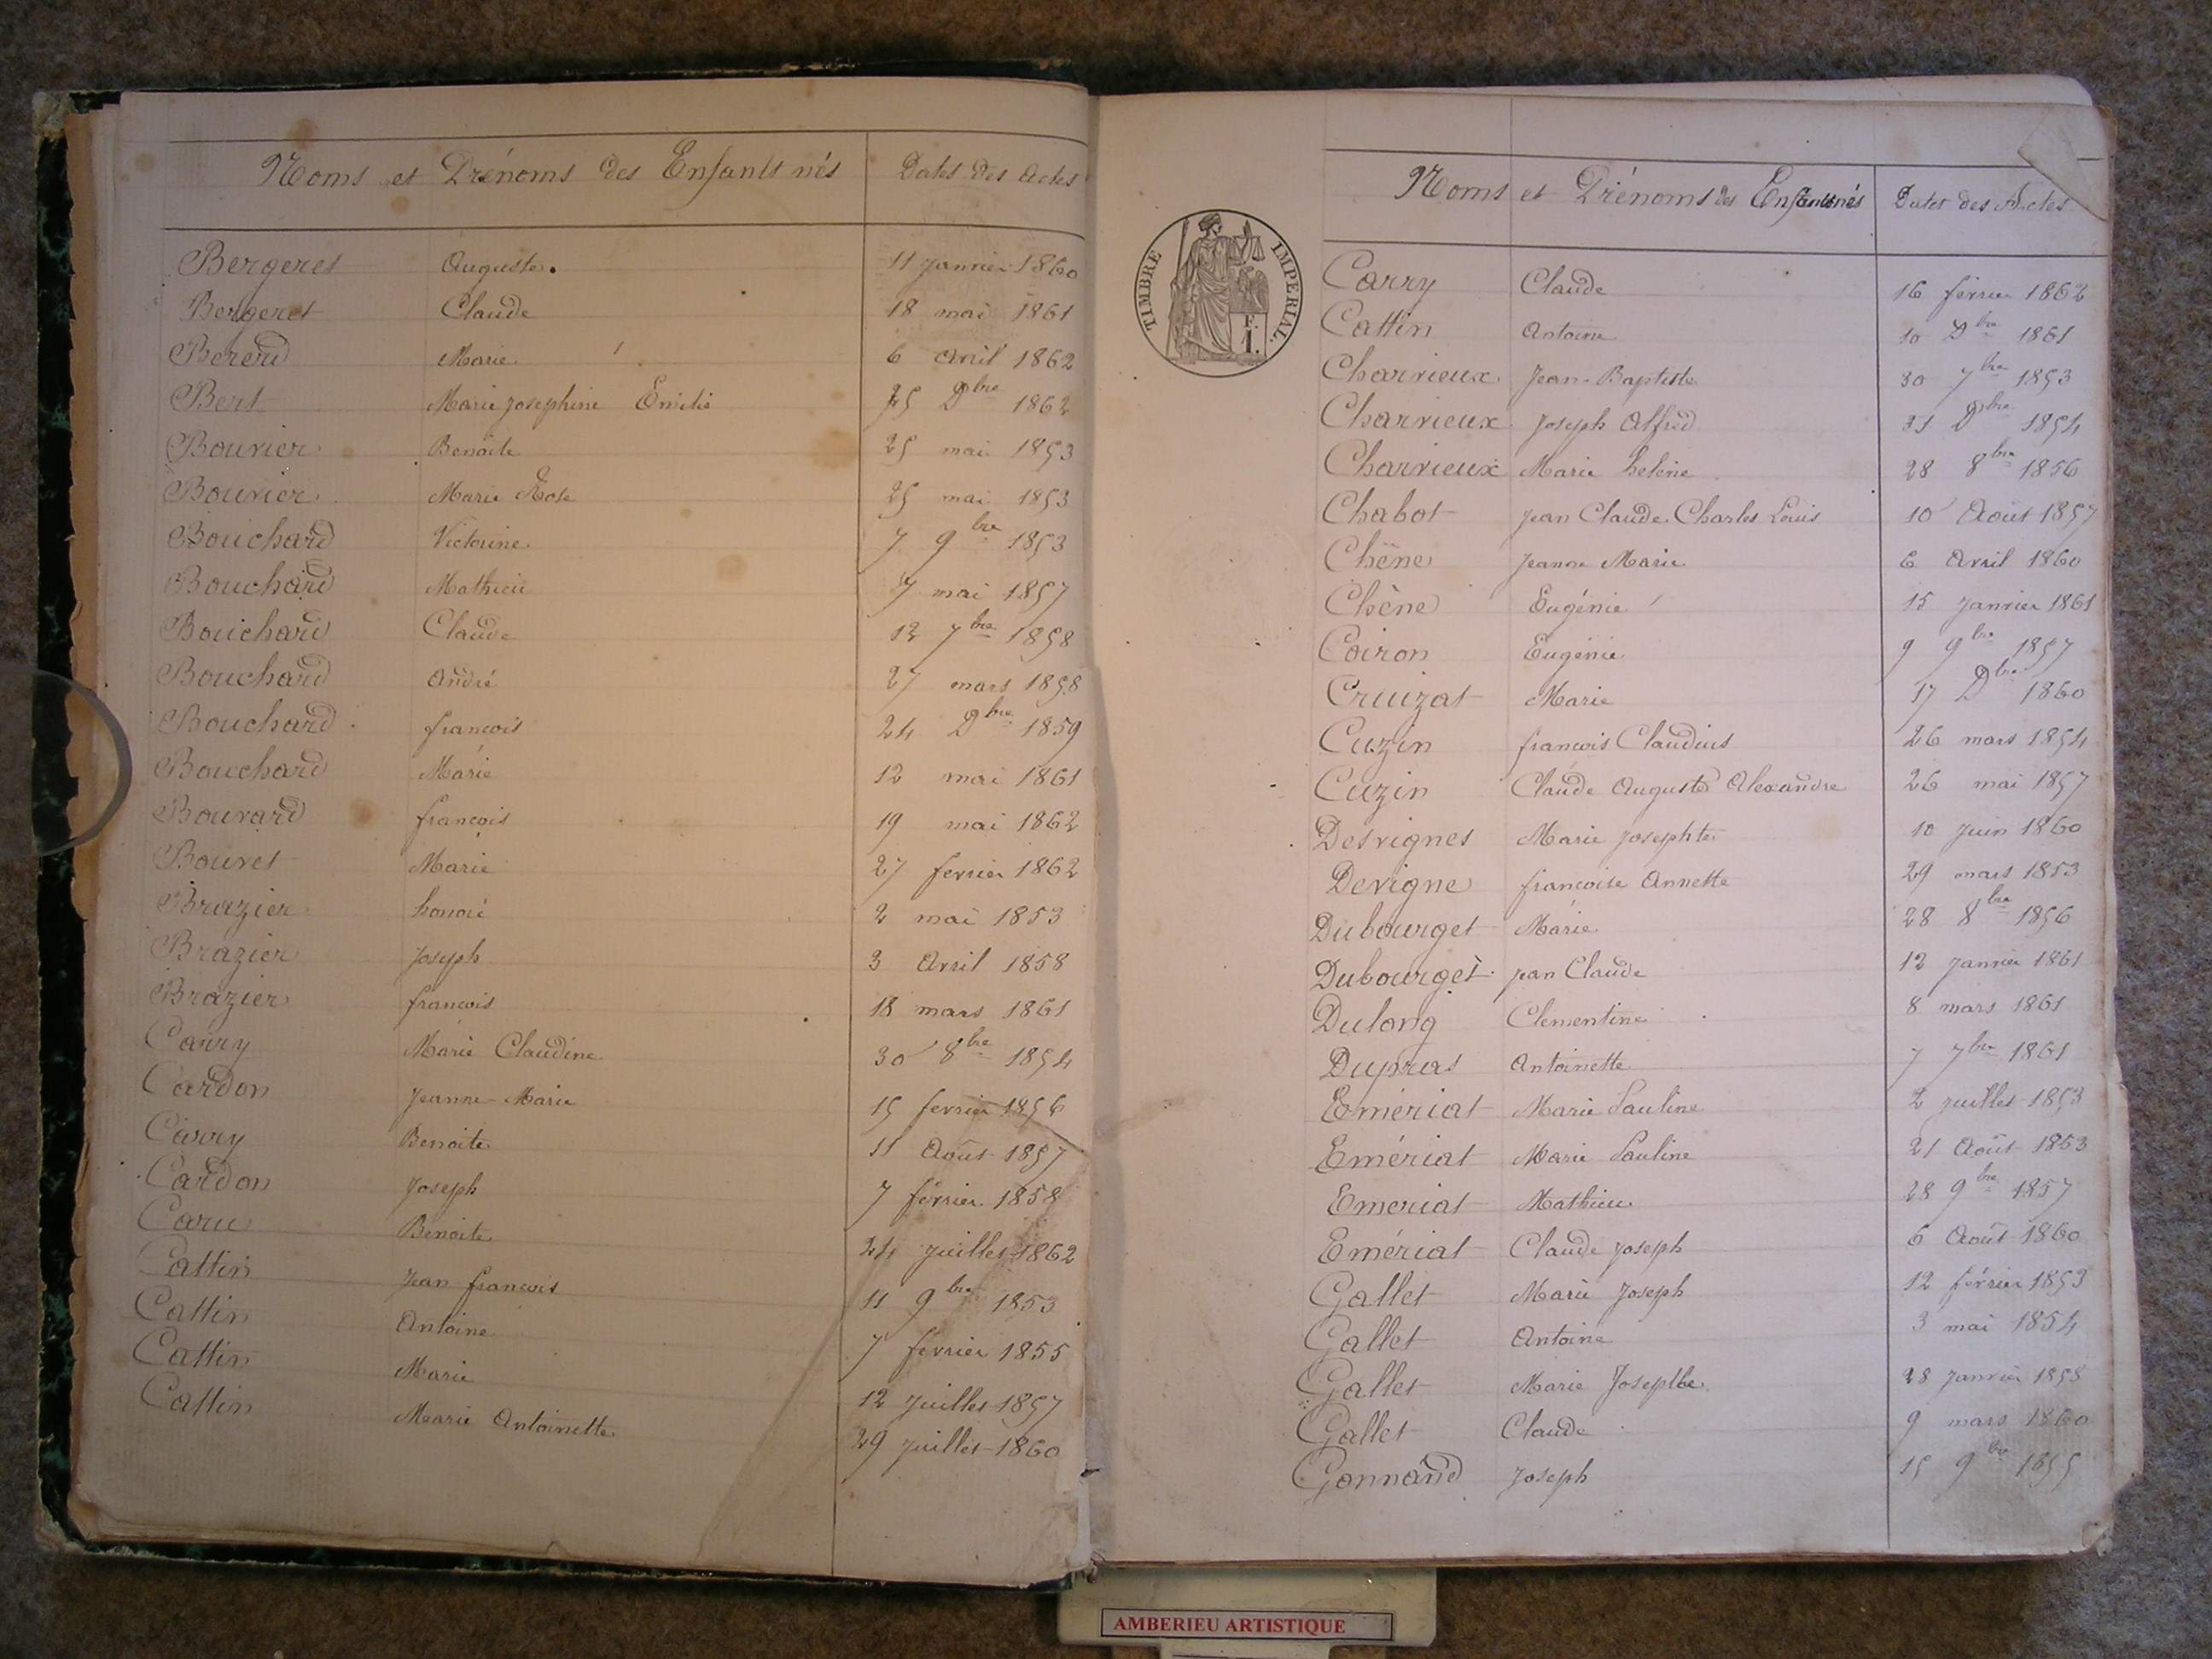 Noms et Prénoms des Enfants nés Dates des Actes
Bergeret Auguste. 11 Janvier 1860
Bergeret Claude 18 mai 1861
Bererd Marie 6 Avril 1862
Bert Marie Josephine Emilie 25 Dbre 1862
Bouvier Benoite 25 mai 1853
Bouvier Marie Rose 25 mai 1853
Bouchard Victorine 7 9bre 1853
Bouchard Mathieu 7 mai 1857
Bouchard Claude 12 7bre 1858
Bouchard André 27 mars 1858
Bouchard francois 24 Dbre 1859
Bouchard Marie 12 mai 1861
Bouvard francois 19 mai 1862
Bouvet Marie 27 fevrier 1862
Brazier honoré 2 mai 1853
Brazier Joseph 3 Avril 1858
Brazier francois 18 mars 1861
Carry Marie Claudine 30 8bre 1854
Cardon Jeanne-Marie 15 fevrier 1856
Carry Benoite 11 Août 1857
Cardon Joseph 7 février 1858
Caru Benoite 24 Juillet 1862
Cattin Jean francois 11 9bre 1853
Cattin Antoine 7 fevrier 1855
Cattin Marie 12 Juillet 1857
Cattin Marie Antoinette 29 Juillet 1860
TIMBRE IMPERIAL.
F.
1.
Noms et Prénoms des Enfants nés Dates des Actes
Carry Claude 16 fevrier 1862
Cattin Antoine 10 Dbre 1861
Charvieux Jean-Baptiste 30 7bre 1853
Charvieux Joseph Alfred 31 Dbre 1854
Charvieux Marie helene 28 8bre 1856
Chabot Jean Claude Charles Louis 10 Août 1857
Chêne Jeanne Marie 6 Avril 1860
Chêne Eugénie 15 Janvier 1861
Coiron Eugénie 9 9bre 1857
Cruizat Marie 17 Dbre 1860
Cuzin francois Claudius 26 mars 1854
Cuzin Claude Auguste Alexandre 26 mai 1857
Desvignes Marie Josephte 10 Juin 1860
Devigne francoise Annette 29 mars 1853
Dubourget Marie 28 8bre 1856
Dubourget Jean Claude 12 Janvier 1861
Dulong Clementine 8 mars 1861
Dupras Antoinette 7 7bre 1861
Emériat Marie Pauline 2 Juillet 1853
Emériat Marie Pauline 21 Août 1853
Emeriat Mathieu 28 9bre 1857
Emériat Claude Joseph 6 Août 1860
Gallet Marie Joseph 12 février 1853
Gallet Antoine 3 mai 1854
Gallet Marie Josephte 28 Janvier 1858
Gallet Claude 9 mars 1860
Gonnand Joseph 15 9bre 1855
AMBERIEU ARTISTIQUE